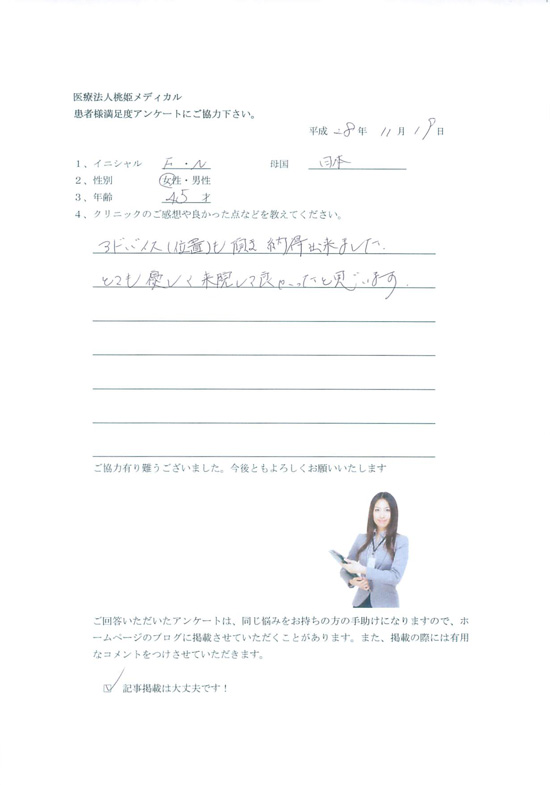 医療法人桃姫メディカル
患者様満足度アンケートにご協力下さい。
平成 28年 11月 19日
1、イニシャル F・N 母国 日本
2、性別 女性・男性
3、年齢 45才
4、クリニックのご感想や良かった点などを教えてください。
アドバイス(位置)も頂き 納得出来ました.
とても優しく来院して良かったと思います.
ご協力有り難うございました。今後ともよろしくお願いいたします
ご回答いただいたアンケートは、同じ悩みをお持ちの方の手助けになりますので、ホ
ームページのブログに掲載させていただくことがあります。また、掲載の際には有用
なコメントをつけさせていただきます。
☑ 記事掲載は大丈夫です!